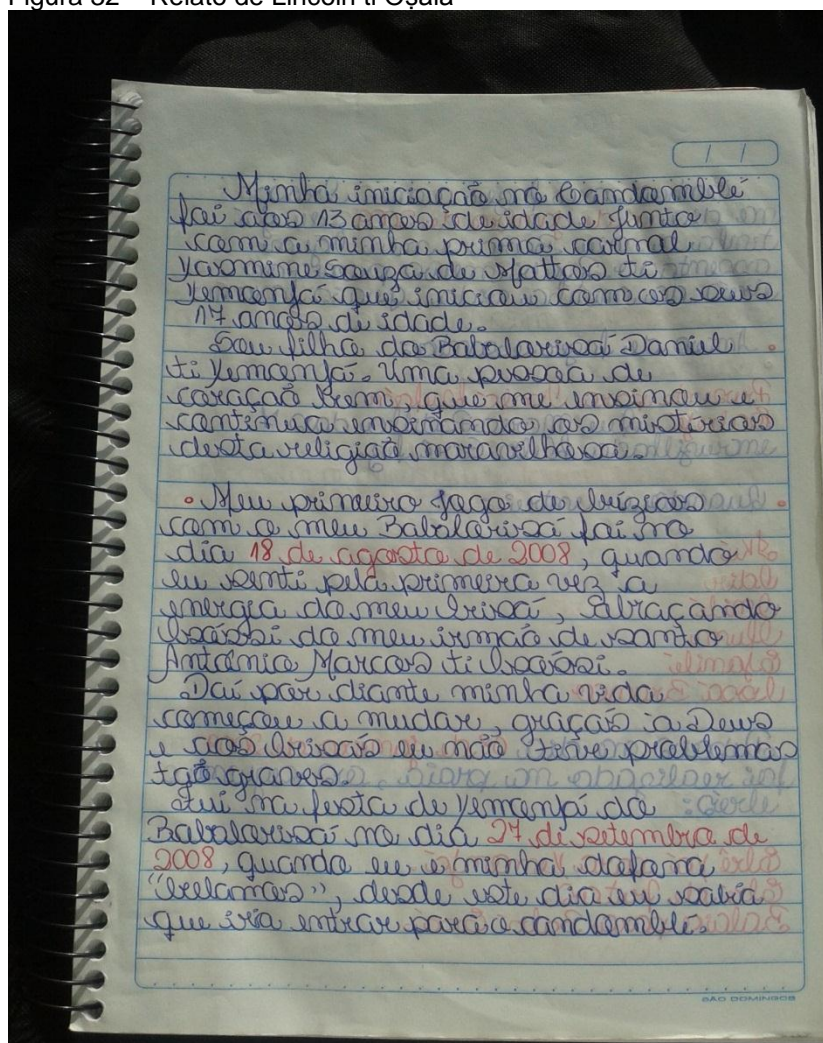 Figura 32 – Relato de Lincoln ti Oṣala
Minha iniciação no Candomblé
foi aos 13 anos de idade junto
com a minha prima carnal
Yasmine Souza de Mattos ti
Yemanjá que iniciou com os seus
17 anos de idade.
Sou filho do Babalorixá Daniel
ti Yemanjá. Uma pessoa de
coração bom, que me ensinou e
continua ensinando os mistérios
desta religião maravilhosa.
• Meu primeiro jogo de búzios
com o meu Babalorixá foi no
dia 18 de agosto de 2008, quando
eu senti pela primeira vez a
energia do meu Orixá, abraçando
Oxóssi do meu irmão de santo
Antônio Marcos ti Oxóssi.
Daí por diante minha vida
começou a mudar, graças a Deus
e aos Orixás eu não tive problemas
tão graves.
Fui na festa de Yemanjá do
Babalorixá no dia 27 de setembro de
2008, quando eu e minha dofona
"bolamos", desde este dia eu sabia
que iria entrar para o candomblé.
SÃO DOMINGOS